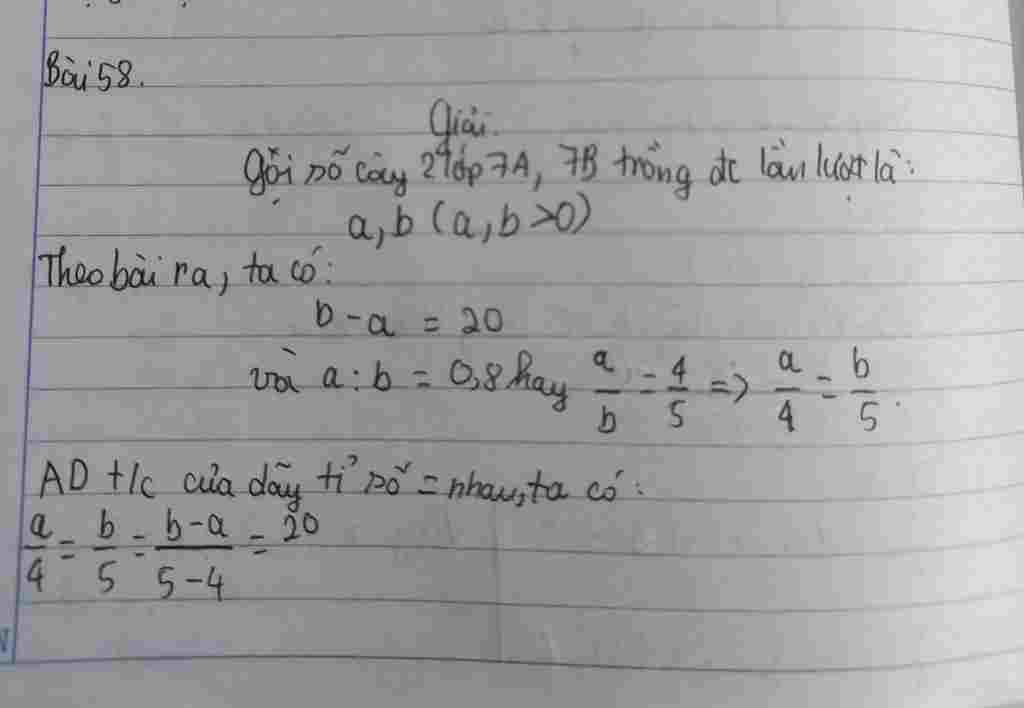 Bài 58.
Giải.
Gọi số cây 2 lớp 7A, 7B trồng đc lần lượt là:
a, b (a, b > 0)
Theo bài ra, ta có:
b - a = 20
và a : b = 0,8 hay a/b = 4/5 => a/4 = b/5.
AD t/c của dãy tỉ số = nhau, ta có:
a/4 = b/5 = b-a/5-4 = 20